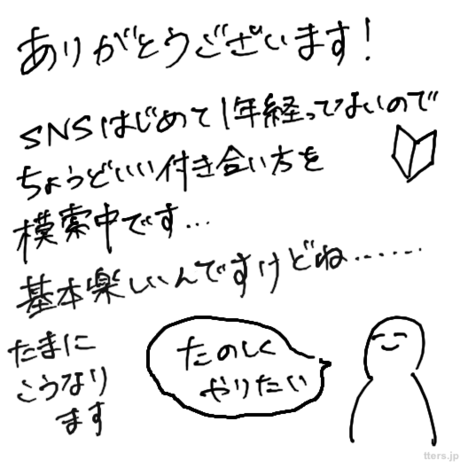 ありがとうございます！
SNSはじめて1年経ってないので
ちょうどいい付き合い方を
模索中です…
基本楽しいんですけどね……
たまに
こうなり
ます
たのしく
やりたい
tters.jp